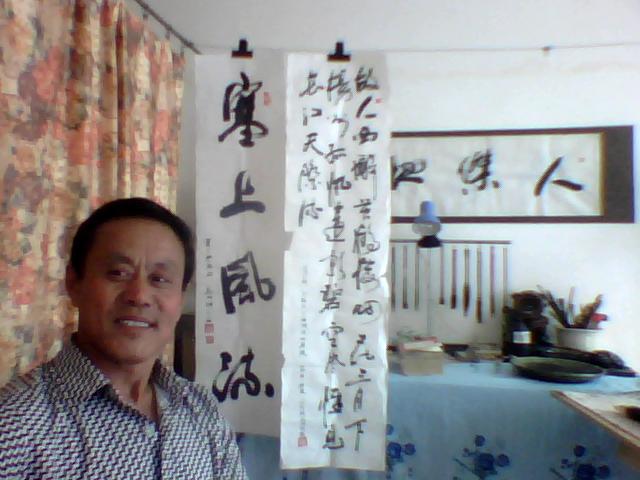 塞上風流
故人西辭黃鶴樓烟花三月下
揚州孤帆遠影碧空盡惟見
長江天際流
人傑地